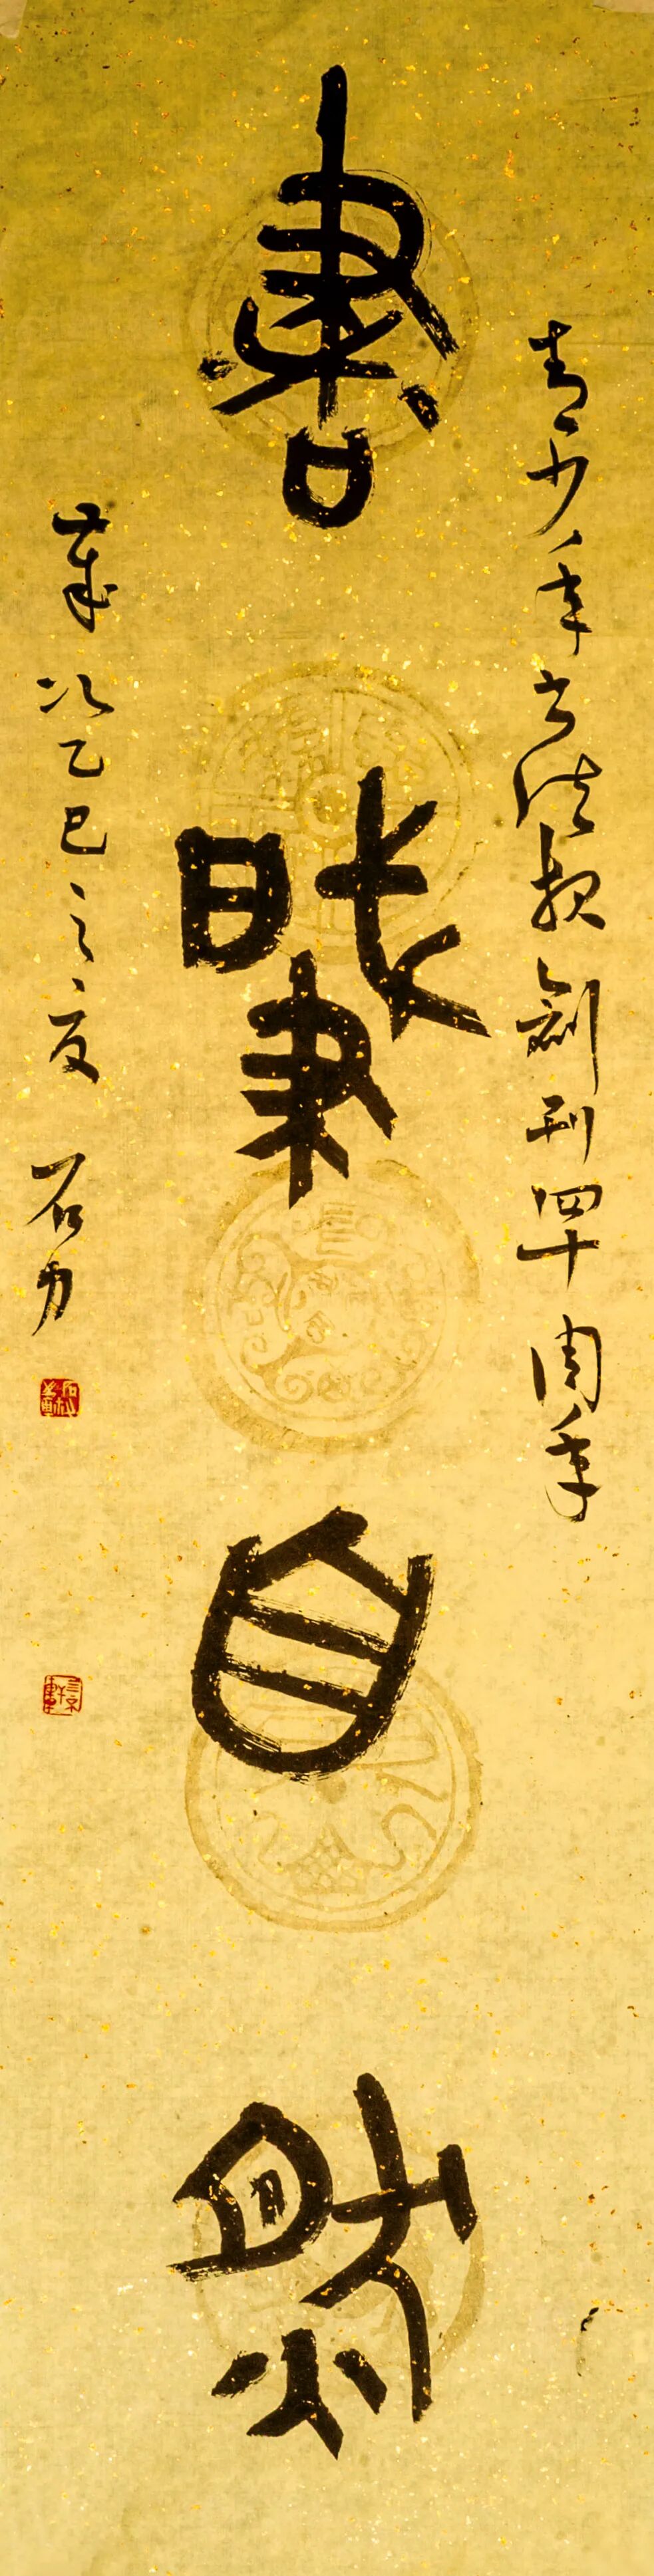 書肇自然
青少年书法报創刊四十周年
歲次乙巳之夏 石力